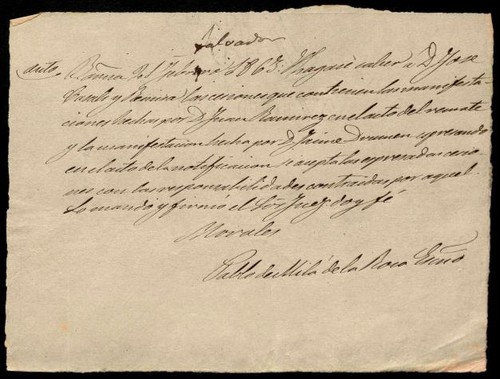 Salvador
auto.
1863. Hagase saber a D. Jose
las cesiones que contienen las manifesta-
ciones hechas por D. Juan Ramirez en el acto del remate
y la manifestacion hecha por D. Jaime expresando
en el acto de la notificacion si acepta las expresadas cesio-
nes con las responsabilidades contraidas por aquel.
Lo mandó y firmó el Sor. Juez doy fé
Morales
Pablo de Milá de la Roca Esnô